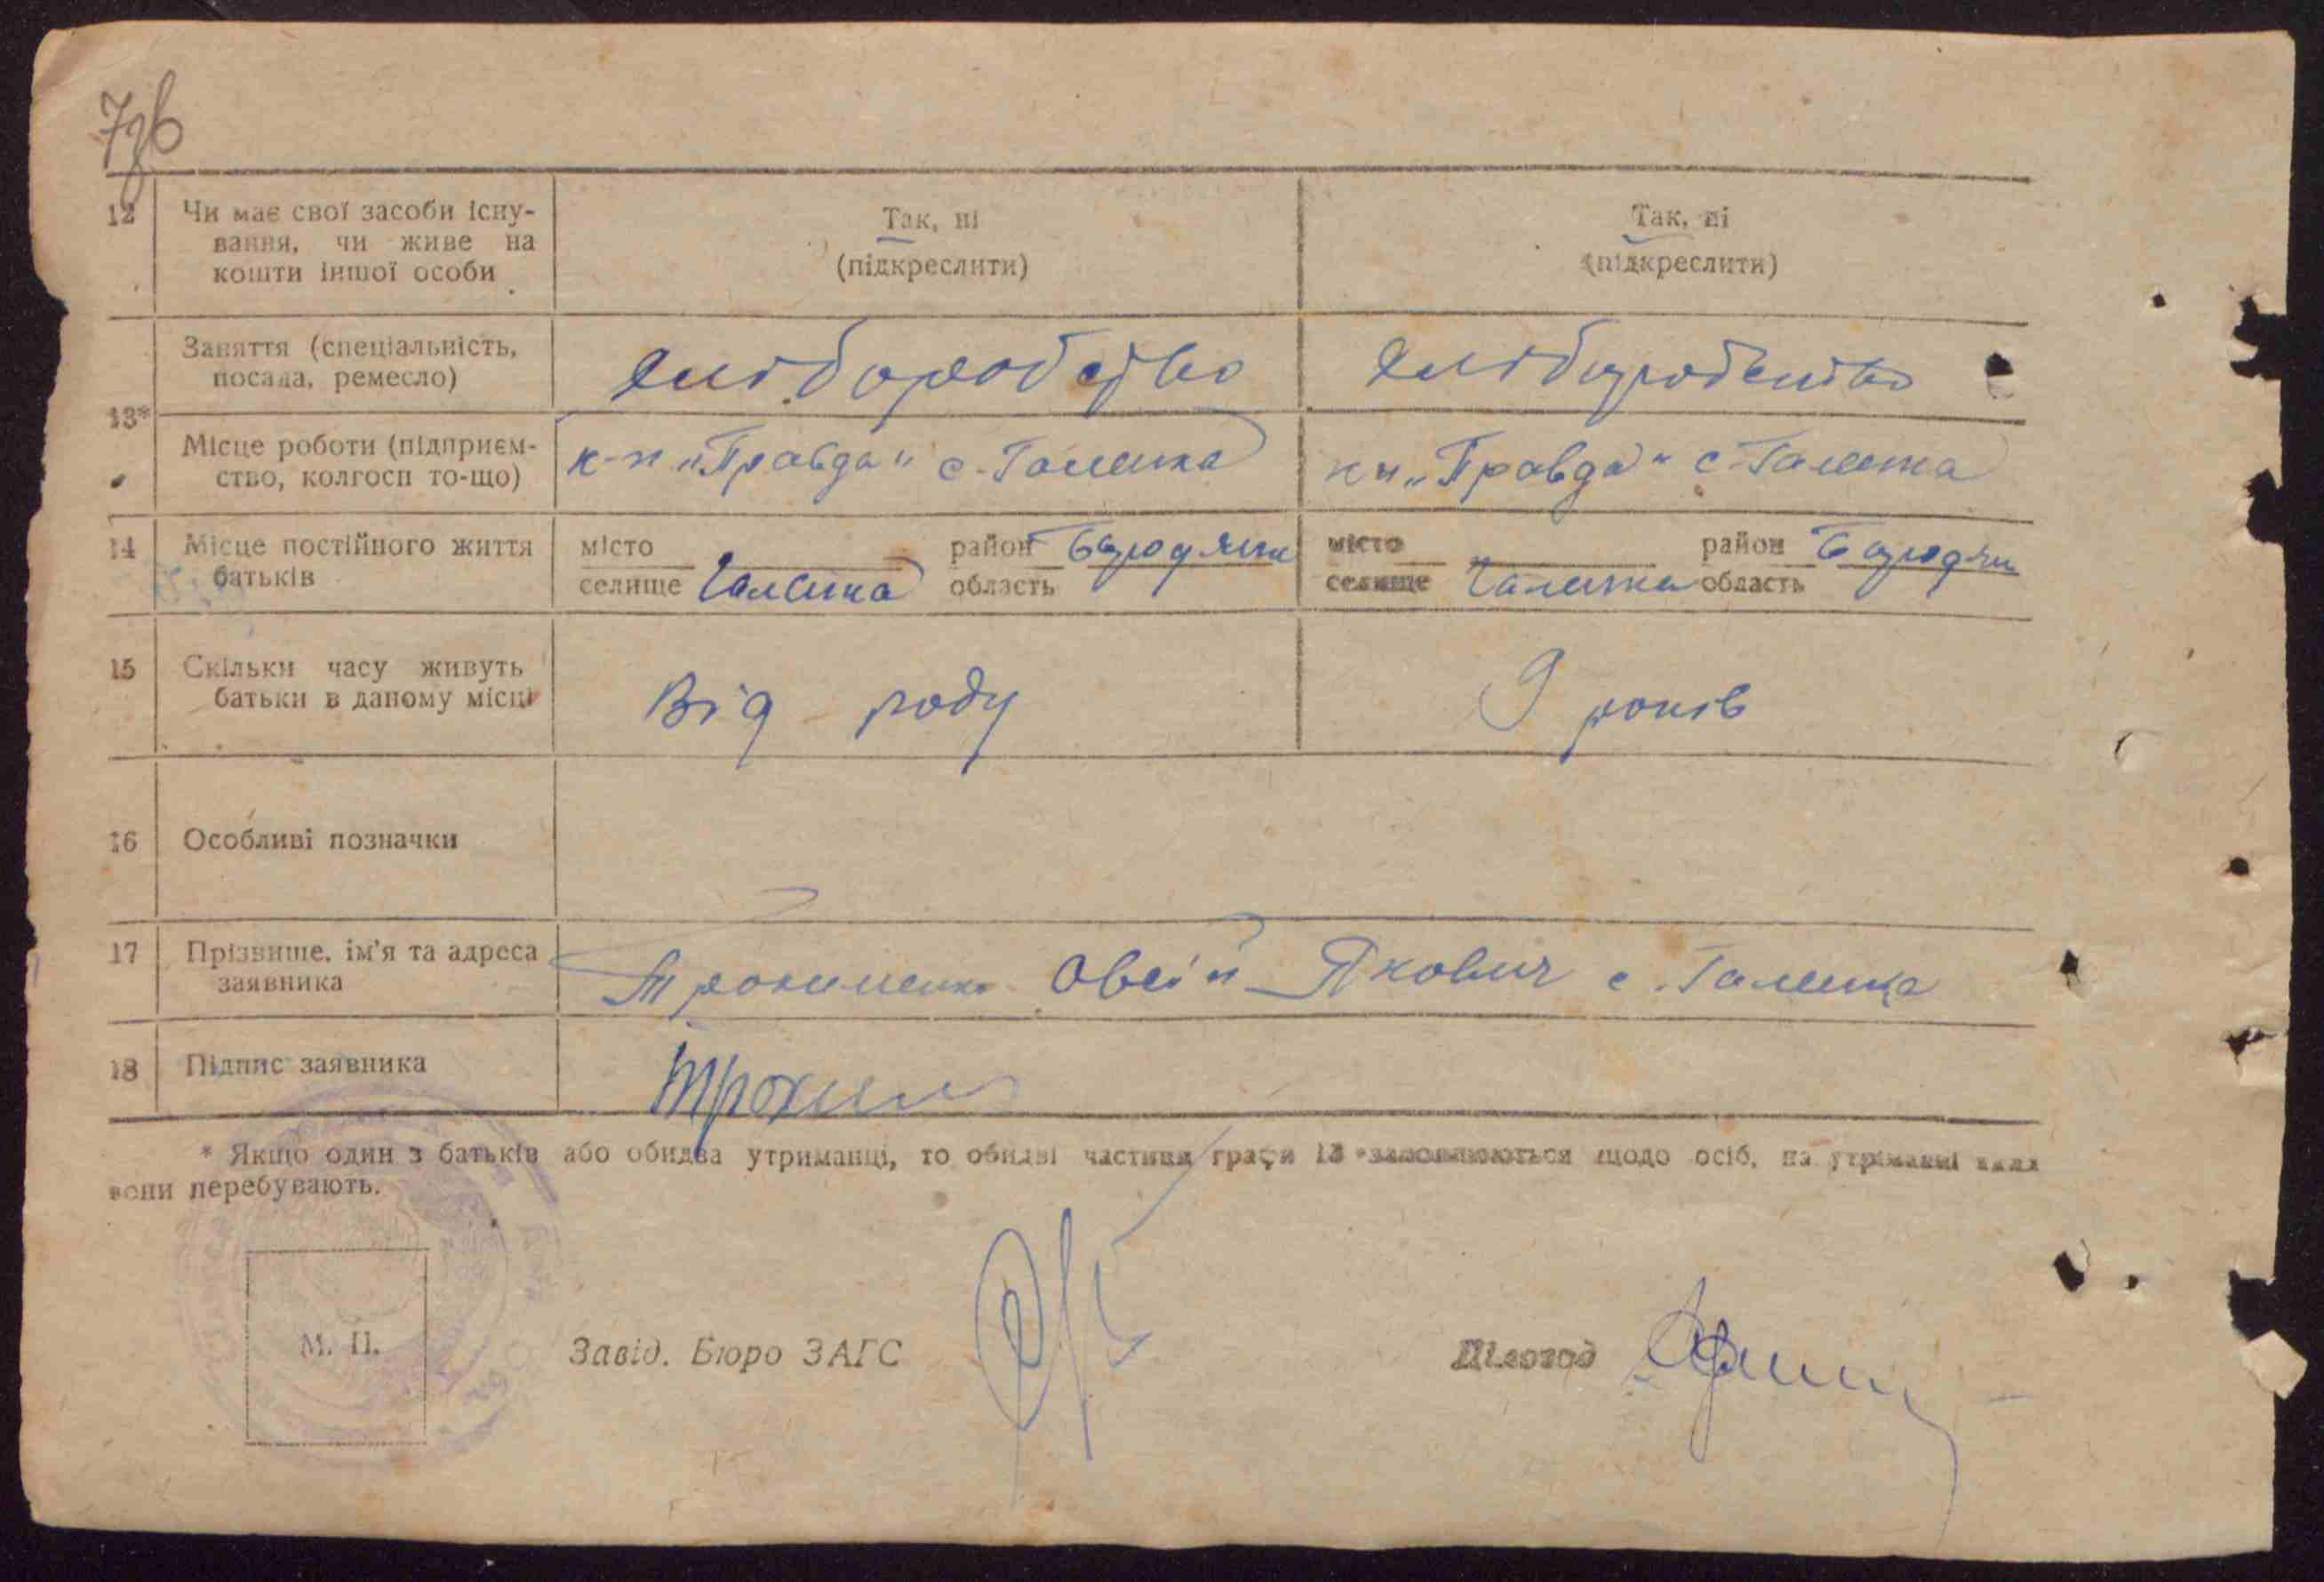 12 Чи має свої засоби існу-
вання, чи живе на
кошти іншої особи
Так, ні
(підкреслити)
Так, ні
(підкреслити)
13*
Заняття (спеціальність,
посада, ремесло)
хліборобство
хліборобство
Місце роботи (підприєм-
ство, колгосп то-що)
к-п „Правда" с. Галинка
кп „Правда" с. Галинка
14 Місце постійного життя
батьків
місто
селище Галинка
район
область
місто
селище Галинка
район
область
15 Скільки часу живуть
батьки в даному місці
Від роду
9 років
16 Особливі позначки
17 Прізвище, ім'я та адреса
заявника
Овсій Якович с. Галинка
18 Підпис заявника
* Якщо один з батьків або обидва утриманці, то обидві частини графи 13 заповнюються щодо осіб, на утриманні яких
вони перебувають.
М. П.
Завід. Бюро ЗАГС
Діловод